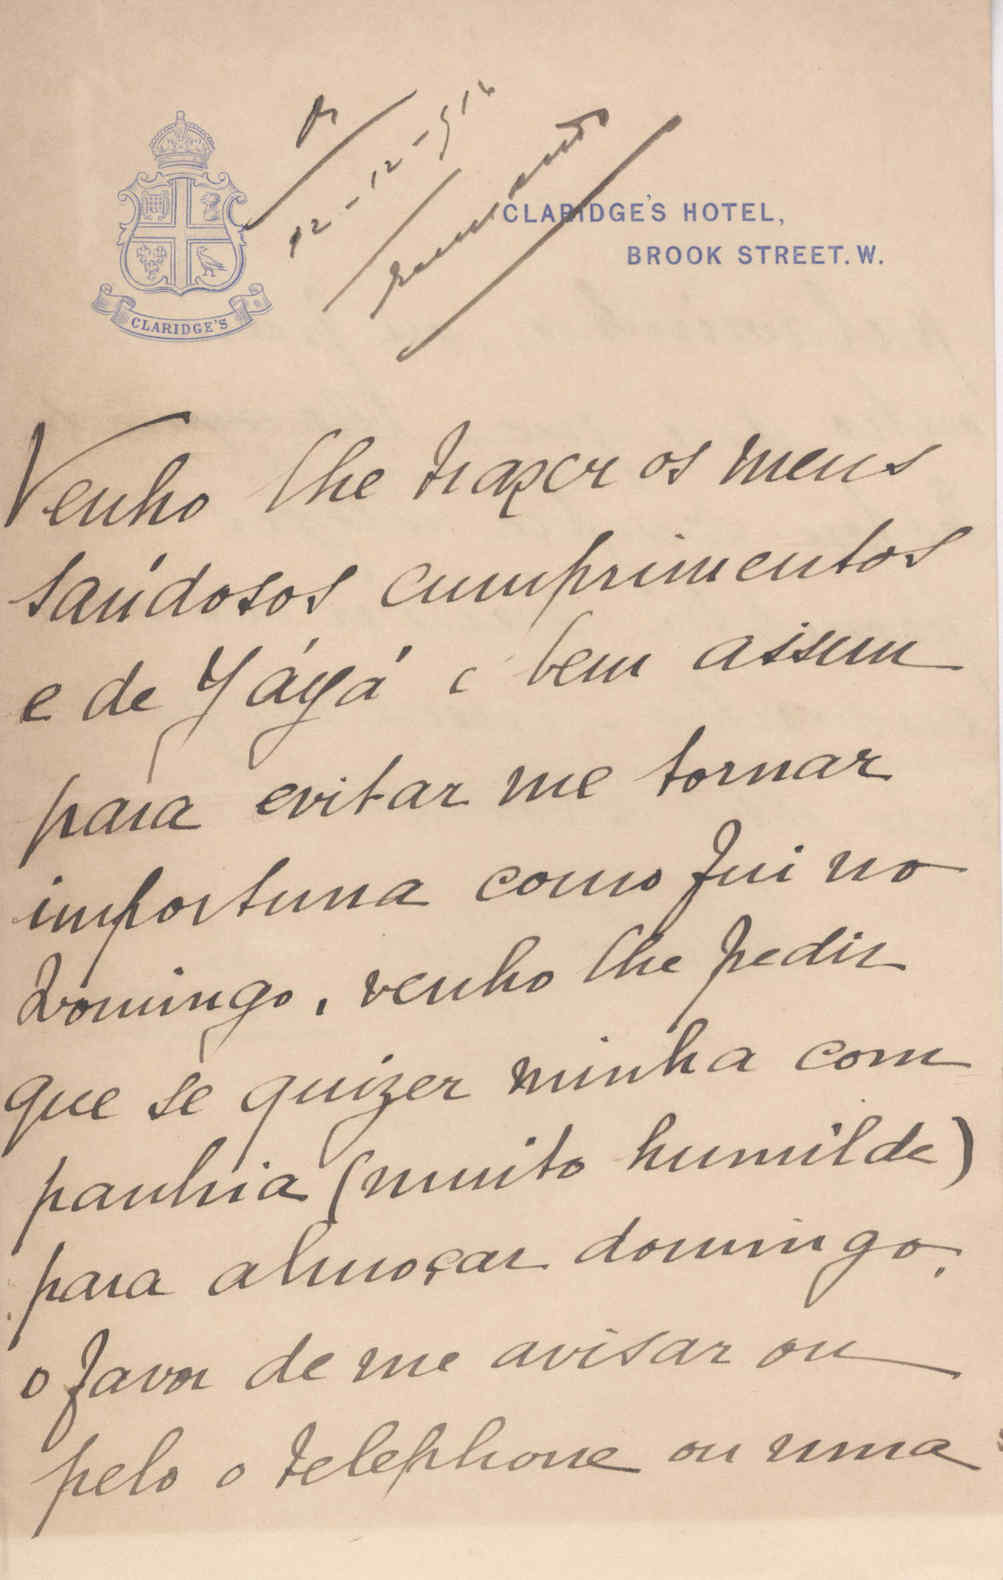 12-12-916
CLARIDGE'S HOTEL,
BROOK STREET. W.
CLARIDGE'S
Venho lhe trazer os meus
saúdosos cumprimentos
e de Yáyá e bem assim
para evitar me tornar
importuna como fui no
Domingo, venho lhe pedir
que se quizer minha com
panhia (muito humilde)
para almoçar domingo,
o favor de me avisar ou
pelo o telephone ou uma